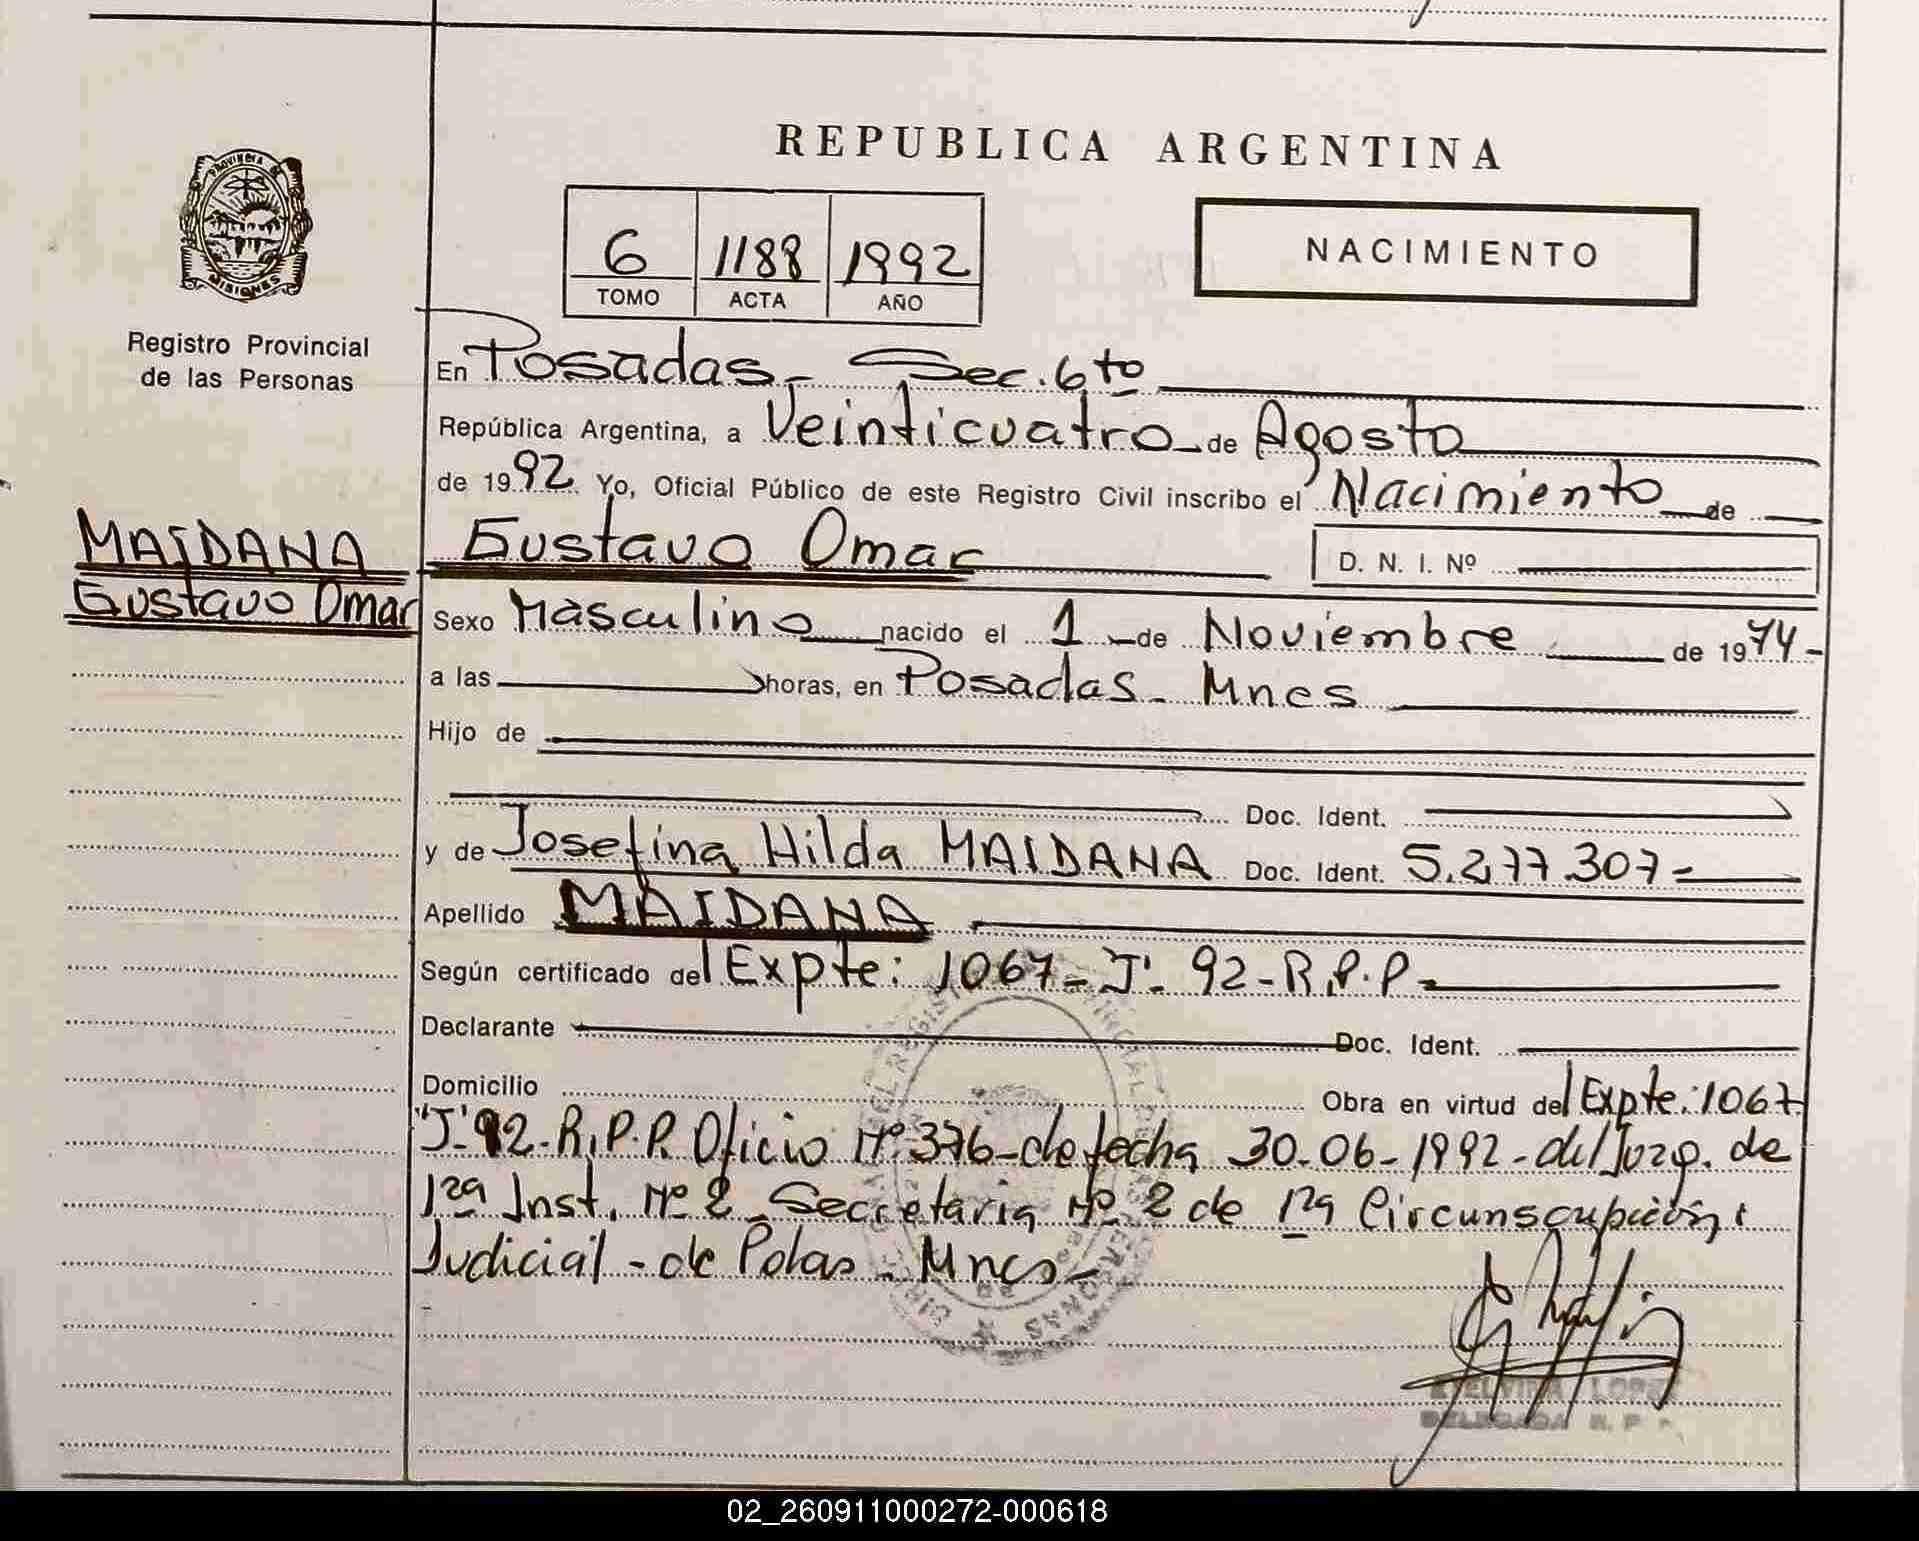 PROVINCIA DE
MISIONES
REPUBLICA ARGENTINA
6 1188 1992
TOMO ACTA AÑO
NACIMIENTO
Registro Provincial
de las Personas
En Posadas - Sec. 6to
República Argentina, a Veinticuatro de Agosto
de 1992 Yo, Oficial Público de este Registro Civil inscribo el Nacimiento de
MAIDANA
Gustavo Omar
Gustavo Omar D. N. I. Nº
Sexo Masculino nacido el 1 de Noviembre de 1974-
a las horas, en Posadas - Mnes
Hijo de
Doc. Ident.
y de Josefina Hilda MAIDANA Doc. Ident. 5.277.307-
Apellido MAIDANA
Según certificado del Expte: 1067-"J"- 92-R.P.P-
Declarante Doc. Ident.
Domicilio Obra en virtud del Expte: 1067.
"J"-92-R.P.P. Oficio Nº 376-de fecha 30-06-1992-del Juzg. de
1ra Inst. Nº 2 - Secretaria Nº 2 de 1ra Circunscripción
Judicial - de Pdas - Mnes-
ETELVINA LOPEZ
DELEGADA R. P. P.
02_260911000272-000618